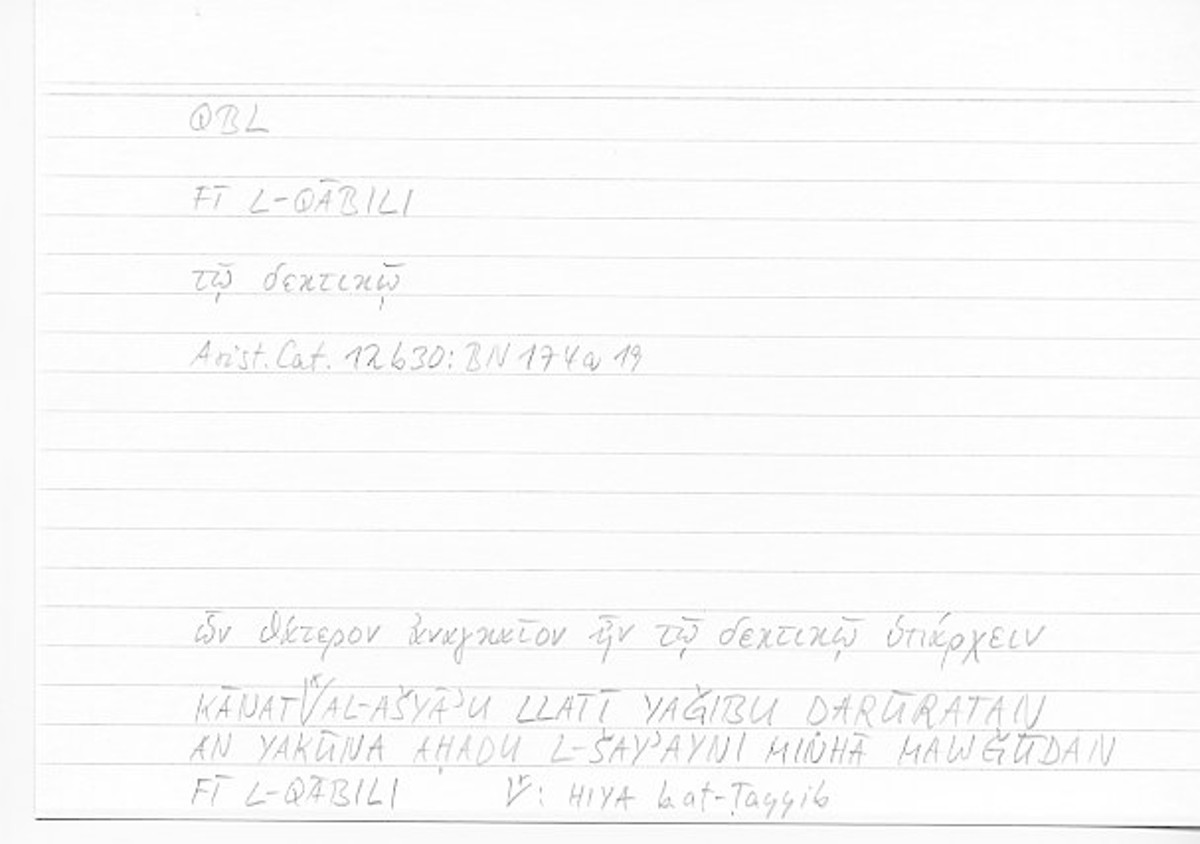 QBL
FĪ L-QĀBILI
τῷ δεκτικῷ
Arist. Cat. 12b30: BN 174a 19
ὧν θάτερον ἀναγκαῖον ἦν τῷ δεκτικῷ ὑπάρχειν
KĀNAT AL-AŠYĀʾU LLATĪ YAǦIBU ḌARŪRATAN
AN YAKŪNA AḤADU L-ŠAYʾAYNI MINHĀ MAWǦŪDAN
FĪ L-QĀBILI : HIYA b. aṭ-Ṭayyib